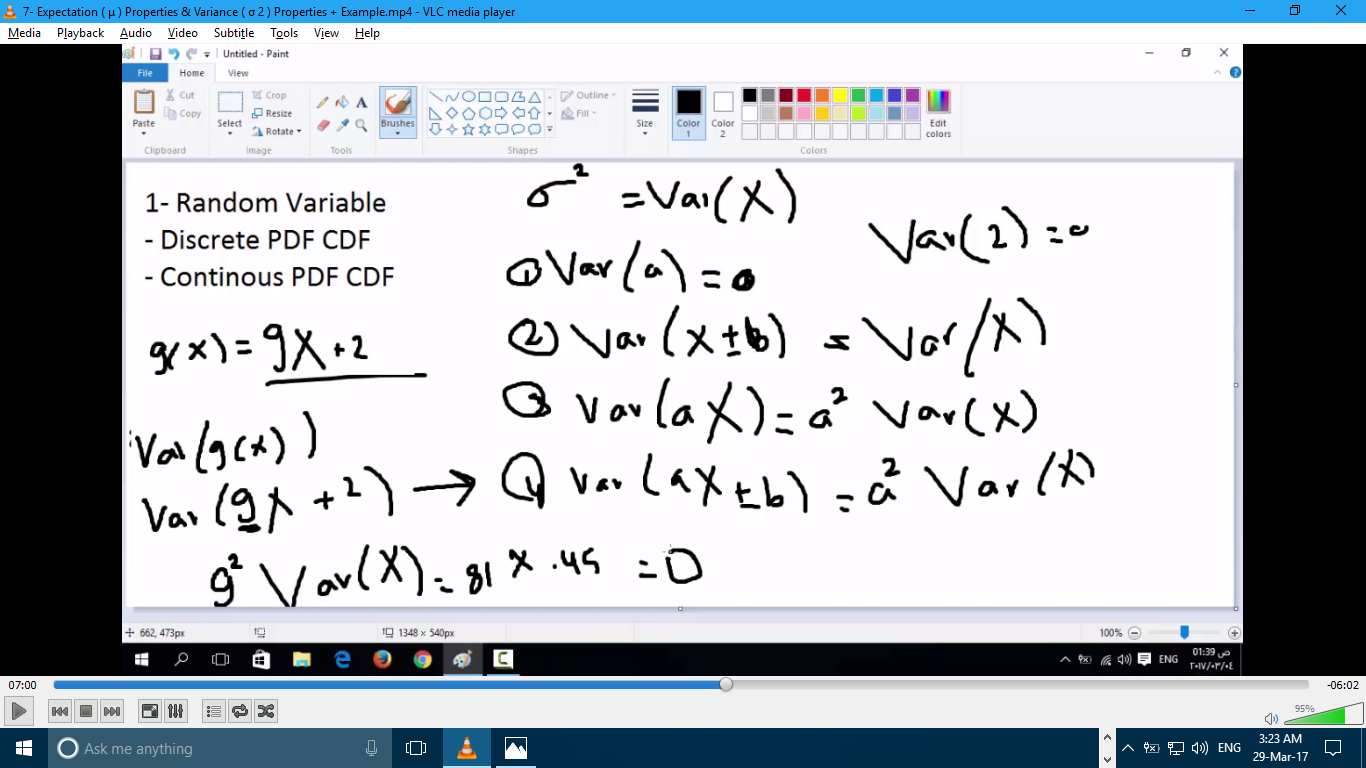 7- Expectation ( μ ) Properties & Variance ( σ 2 ) Properties + Example.mp4 - VLC media player
Media Playback Audio Video Subtitle Tools View Help
Untitled - Paint
File Home View
Paste
Cut
Copy
Clipboard
Select
Crop
Resize
Rotate
Image
Tools
Brushes
Outline
Fill
Shapes
Size
Color 1
Color 2
Colors
Edit colors
1- Random Variable
- Discrete PDF CDF
- Continous PDF CDF
g(x) = 9X + 2
Var(g(x))
Var(9X + 2) →
9² Var(X) = 81 x .45 = 0
σ² = Var(X)
Var(2) = 0
① Var(a) = 0
② Var(X ± b) = Var(X)
③ Var(aX) = a² Var(X)
④ Var(aX ± b) = a² Var(X)
662, 473px
1348 × 540px
100%
ENG
01:39 ص
٢٠١٧/٠٣/٠٤
07:00
-06:02
95%
Ask me anything
ENG
3:23 AM
29-Mar-17